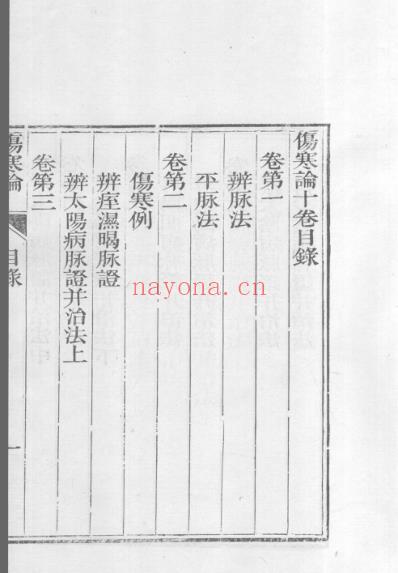 傷寒論十卷目錄
卷第一
辨脉法
平脉法
卷第二
傷寒例
辨痓濕暍脉證
辨太陽病脉證并治法上
卷第三
傷寒論
目錄
一
nayona.cn